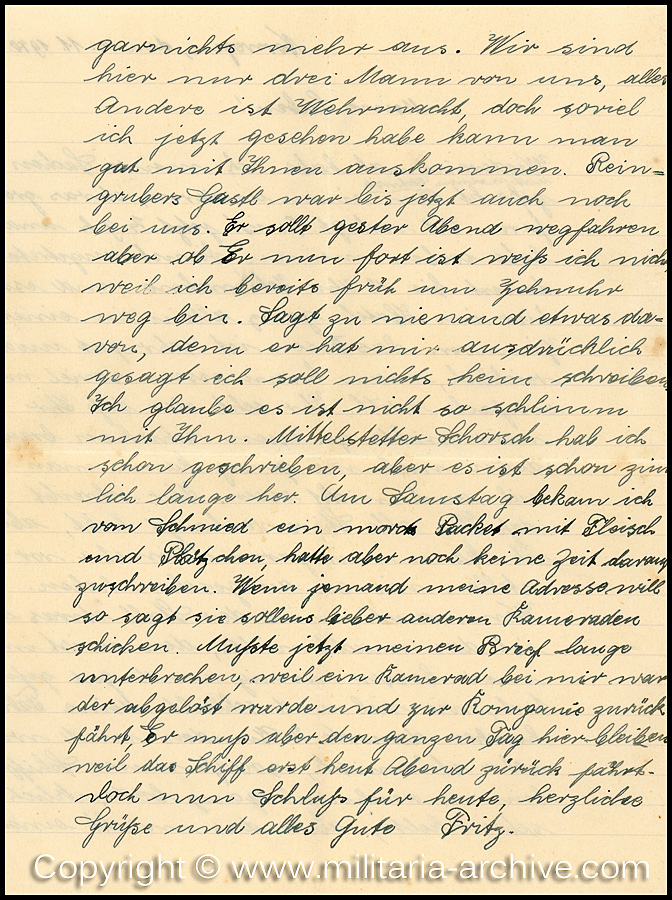 garnichts mehr aus. Wir sind
hier nur drei Mann von uns, alles
Andere ist Wehrmacht, doch soviel
ich jetzt gesehen habe kann man
gut mit Ihnen auskommen. Rein=
grubers Gastl war bis jetzt auch noch
bei uns. Er sollt gester Abend wegfahren
aber ob Er nun fort ist weiß ich nich
weil ich bereits früh um Zehnuhr
weg bin. Sagt zu nienand etwas da=
von, denn er hat mir ausdrücklich
gesagt ich soll nichts heim schreiben
Ich glaube es ist nicht so schlimm
mit Ihm. Mittelstetter Schorsch hab ich
schon geschrieben, aber es ist schon zim
lich lange her. Am Samstag bekam ich
vom Schmied ein Packet mit Fleisch
und Plätzchen, hatte aber noch keine Zeit darauf
zuschreiben. Wenn jemand meine Adresse will
so sagt sie sollens lieber anderen Kameraden
schicken. Mußte jetzt meinen Brief lange
unterbrechen, weil ein Kamerad bei mir war
der abgelöst wurde und zur Kompanie zurück
fährt, Er muß aber den ganzen Tag hier bleiben
weil das Schiff erst heut Abend zurück fährt.
Doch nun Schluß für heute, herzliche
Grüße und alles Gute Fritz.
Copyright © www.militaria-archive.com